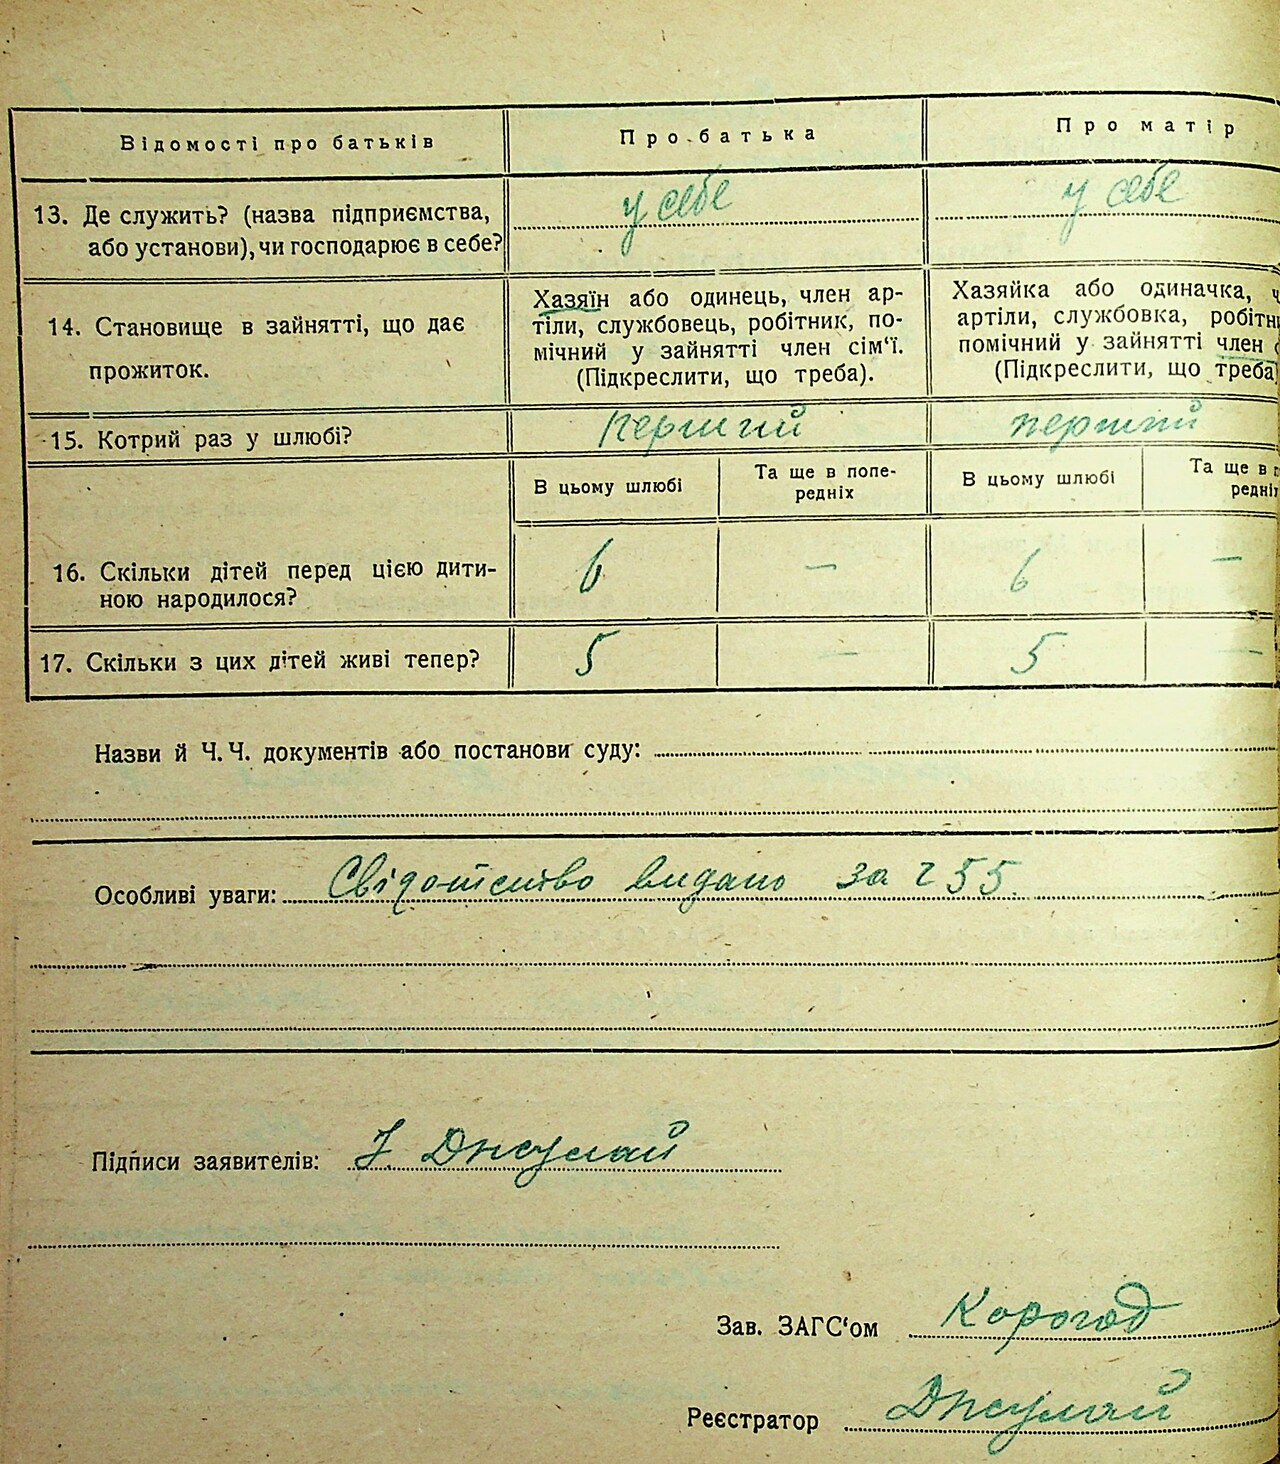 Відомості про батьків Про батька Про матір
13. Де служить? (назва підприємства, у себе у себе
або установи), чи господарює в себе?
14. Становище в зайнятті, що дає
прожиток.
Хазяїн або одинець, член ар-
тіли, службовець, робітник, по-
мічний у зайнятті член сім'ї.
(Підкреслити, що треба).
Хазяйка або одиначка, ч
артіли, службовка, робітн
помічний у зайнятті член
(Підкреслити, що треба)
15. Котрий раз у шлюбі? перший перший
В цьому шлюбі Та ще в попе-
редніх
В цьому шлюбі Та ще в п
редніх
16. Скільки дітей перед цією дити-
ною народилося? 6 — 6 —
17. Скільки з цих дітей живі тепер? 5 — 5 —
Назви й Ч. Ч. документів або постанови суду:
Особливі уваги: Свідотство видано за ч 55.
Підписи заявителів: Джулай
Зав. ЗАГС'ом Корогод
Реєстратор Джулай